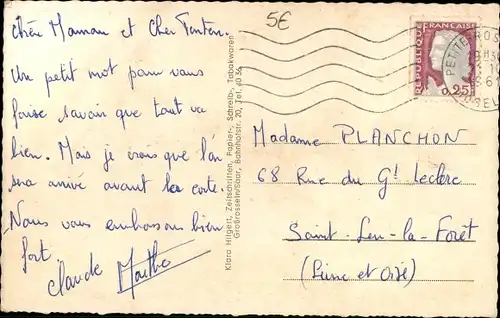 Chère Maman et Cher Tonton.
Un petit mot pour vous
faire savoir que tout va
bien. Mais je crois que l'on
sera arrivé avant la carte.
Nous vous embrassons bien
fort.
Claude Marthe
5€
Klara Hilgert, Zeitschriften, Papier-, Schreib-, Tabakwaren
Großrosseln/Saar, Bahnhofstr. 20, Tel. 40 36
REPUBLIQUE FRANÇAISE
0,25
PETITE ROS
Madame PLANCHON
68 Rue du Gl Leclerc
Saint-Leu-la-Forêt
(Seine et Oise)